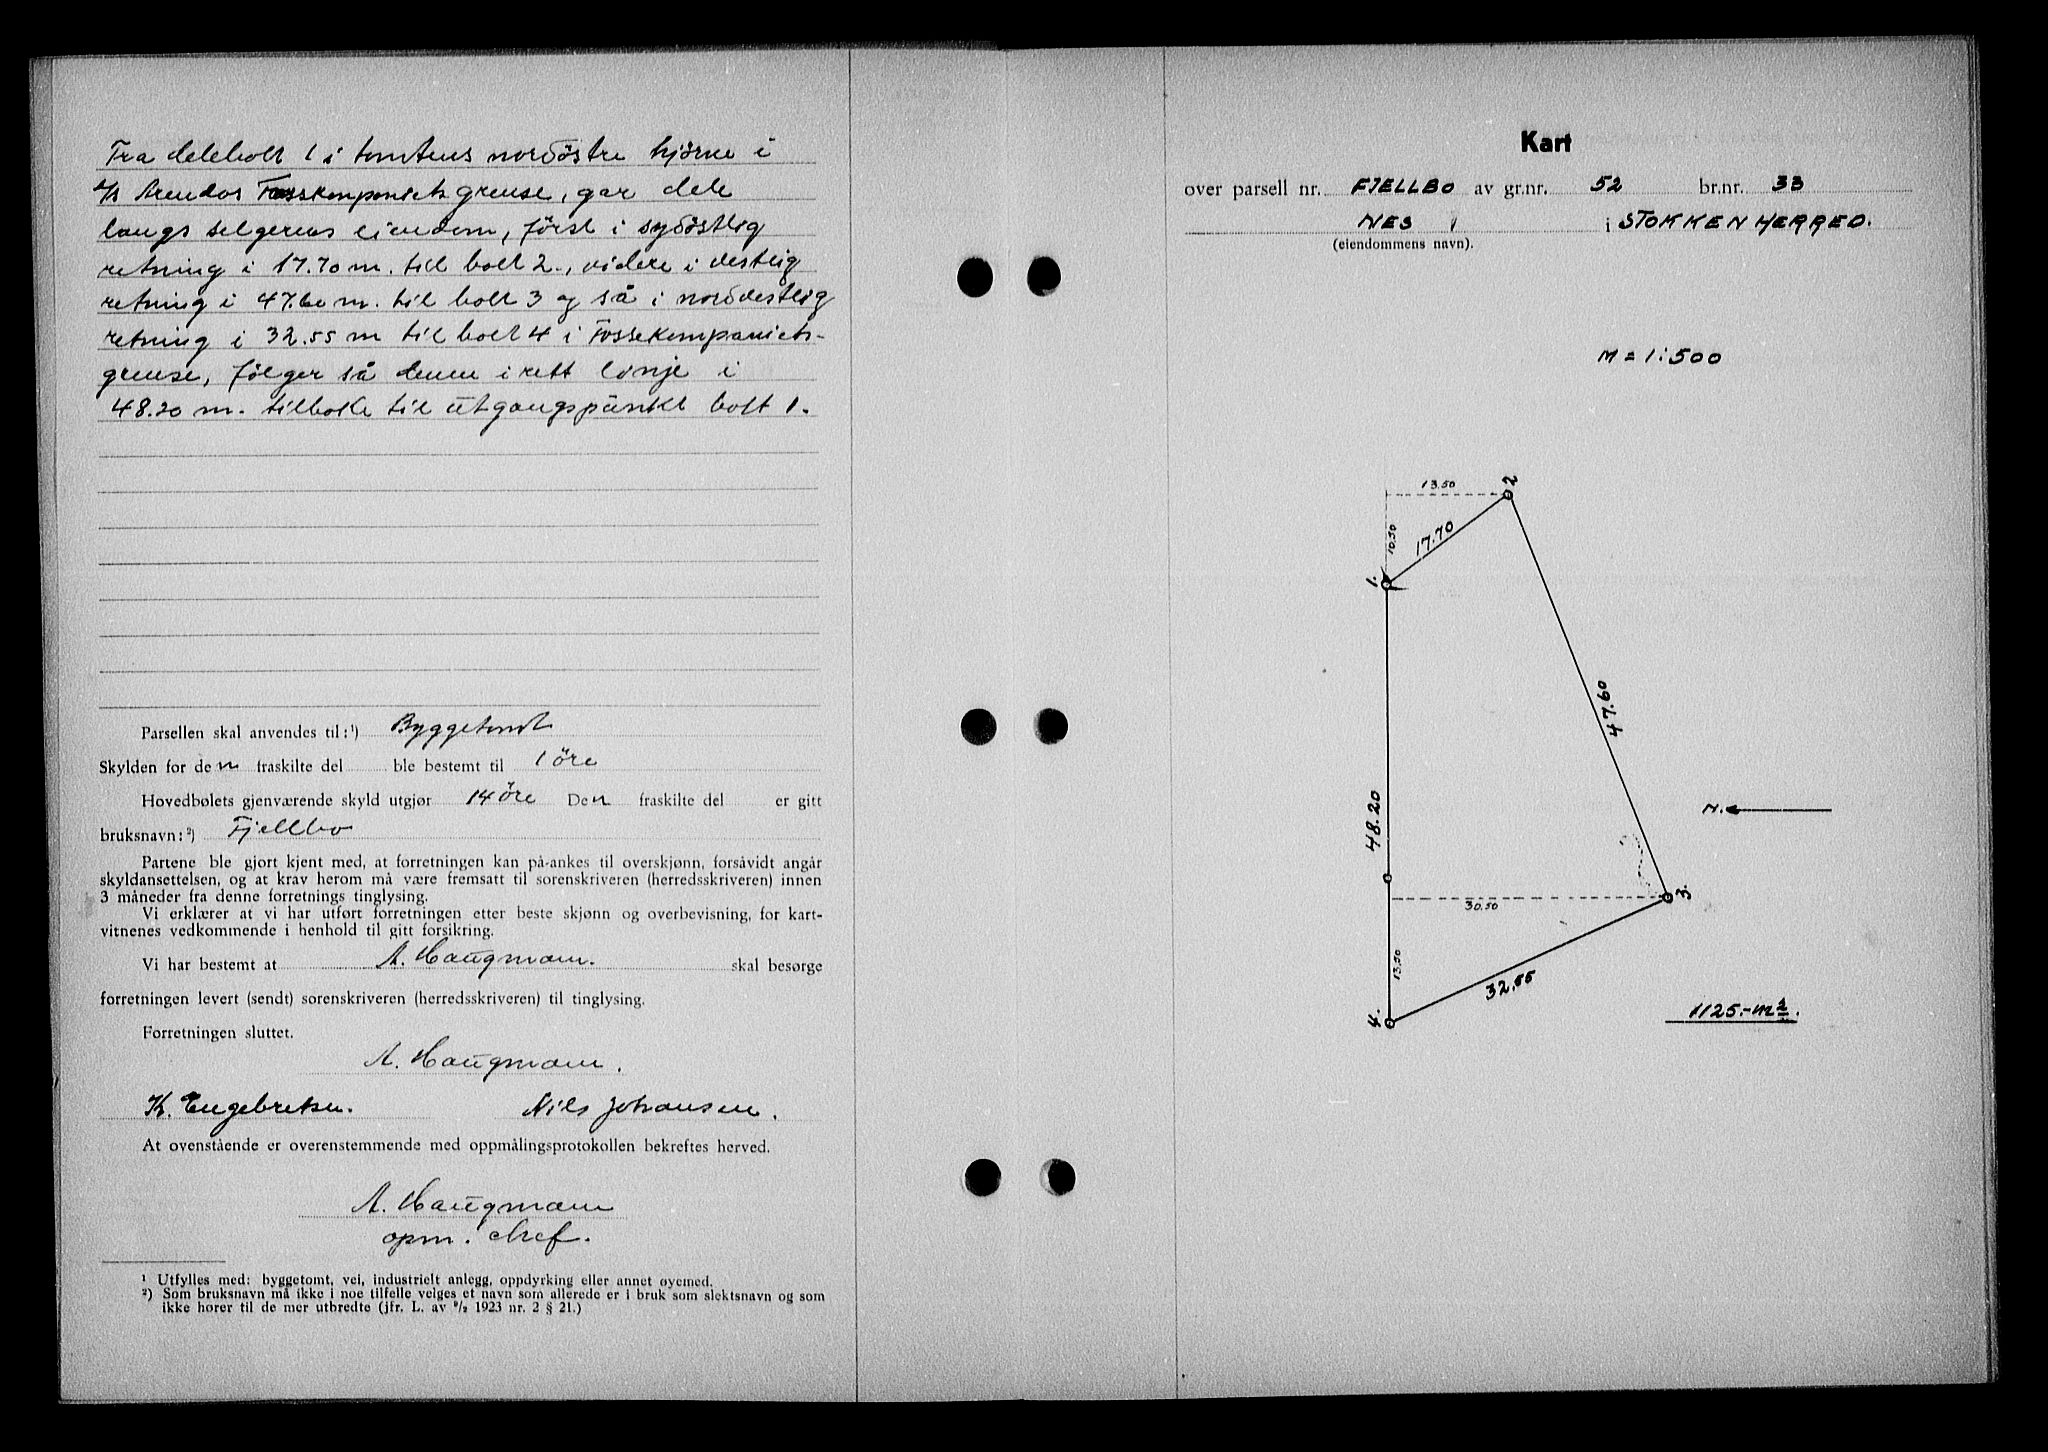 Fra delebolt 1 i tomtens nordöstre hjörne i
A/S Arendals Fossekompaniets grense, går dele
langs selgerens eiendom, först i sydöstlig
retning i 17.70 m. til bolt 2., videre i vestlig
retning i 47.60 m. til bolt 3 og så i nordvestlig
retning i 32.55 m til bolt 4 i Fossekompaniets-
grense, fölger så denne i rett linje i
48.20 m. tilbake til utgangspunkt bolt 1.
Parsellen skal anvendes til:¹) Byggetomt
Skylden for den fraskilte del ble bestemt til 1 öre
Hovedbølets gjenværende skyld utgjør 14 öre Den fraskilte del er gitt
bruksnavn:²) Fjellbo
Partene ble gjort kjent med, at forretningen kan på-ankes til overskjønn, forsåvidt angår
skyldansettelsen, og at krav herom må være fremsatt til sorenskriveren (herredsskriveren) innen
3 måneder fra denne forretnings tinglysing.
Vi erklærer at vi har utført forretningen etter beste skjønn og overbevisning, for kart-
vitnenes vedkommende i henhold til gitt forsikring.
Vi har bestemt at A. Haugmann. skal besørge
forretningen levert (sendt) sorenskriveren (herredsskriveren) til tinglysing.
Forretningen sluttet.
A. Haugmann.
K. Engebretsen. Nils Johansen.
At ovenstående er overenstemmende med oppmålingsprotokollen bekreftes herved.
A. Haugmann
opm. chef.
¹ Utfylles med: byggetomt, vei, industrielt anlegg, oppdyrking eller annet øyemed.
²) Som bruksnavn må ikke i noe tilfelle velges et navn som allerede er i bruk som slektsnavn og som
ikke hører til de mer utbredte (jfr. L. av ⁹/₂ 1923 nr. 2 § 21.)
Kart
over parsell nr. FJELLBO av gr.nr. 52 br.nr. 33
NES i STOKKEN HERRED.
(eiendommens navn).
M = 1:500
13.50
2
10.50
17.70
1.
47.60
48.20
N.
3.
30.50
13.50
32.55
4.
1125.- m²